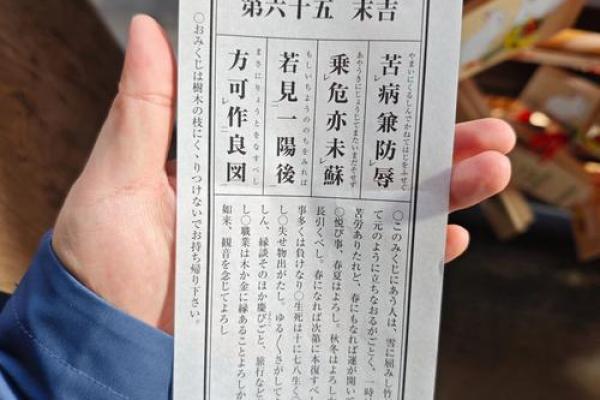 第六十五 末吉
やまいにくるしんでかねてはじをふせぐ
苦病兼防辱
あやうきにじょうじてまたいまだそせず
乗危亦未蘇
もしいちようののちをみれば
若見一陽後
まさにりょうとをなすべし
方可作良図
○このみくじにあう人は、雪に屈みし竹
て元のように立ちなおるがごとく、一時
苦労ありたれど、春にもなれば運が開い
○悦び事、春夏はよろし。秋冬はよろし
長引くべし、春になれば次第に本復すべ
事多くは負けなり○生死は十に七八生く
し○失せ物出がたし。ゆる〱さがして
しん、縁談そのほか慶びごと、旅行など
し○職業は木か金に縁あることよろしか
如来、観音を念じてよろし
○おみくじは樹木の枝にくゝりつけないでお持ち帰り下さい。